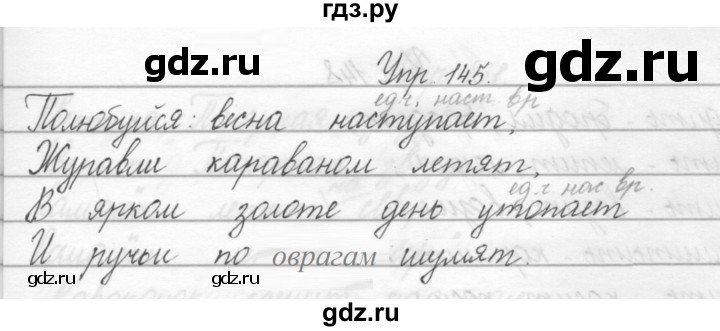 гдз.ру
gdz.ru gdz.ru gdz.ru
Упр. 145.
ед.ч. наст вр
Полюбуйся: весна наступает,
Журавли караваном летят,
gdz.ru gdz.ru
ед.ч нас. вр.
В ярком золоте день утопает
И ручьи по оврагам шумят.
gdz.ru gdz.ru gdz.ru